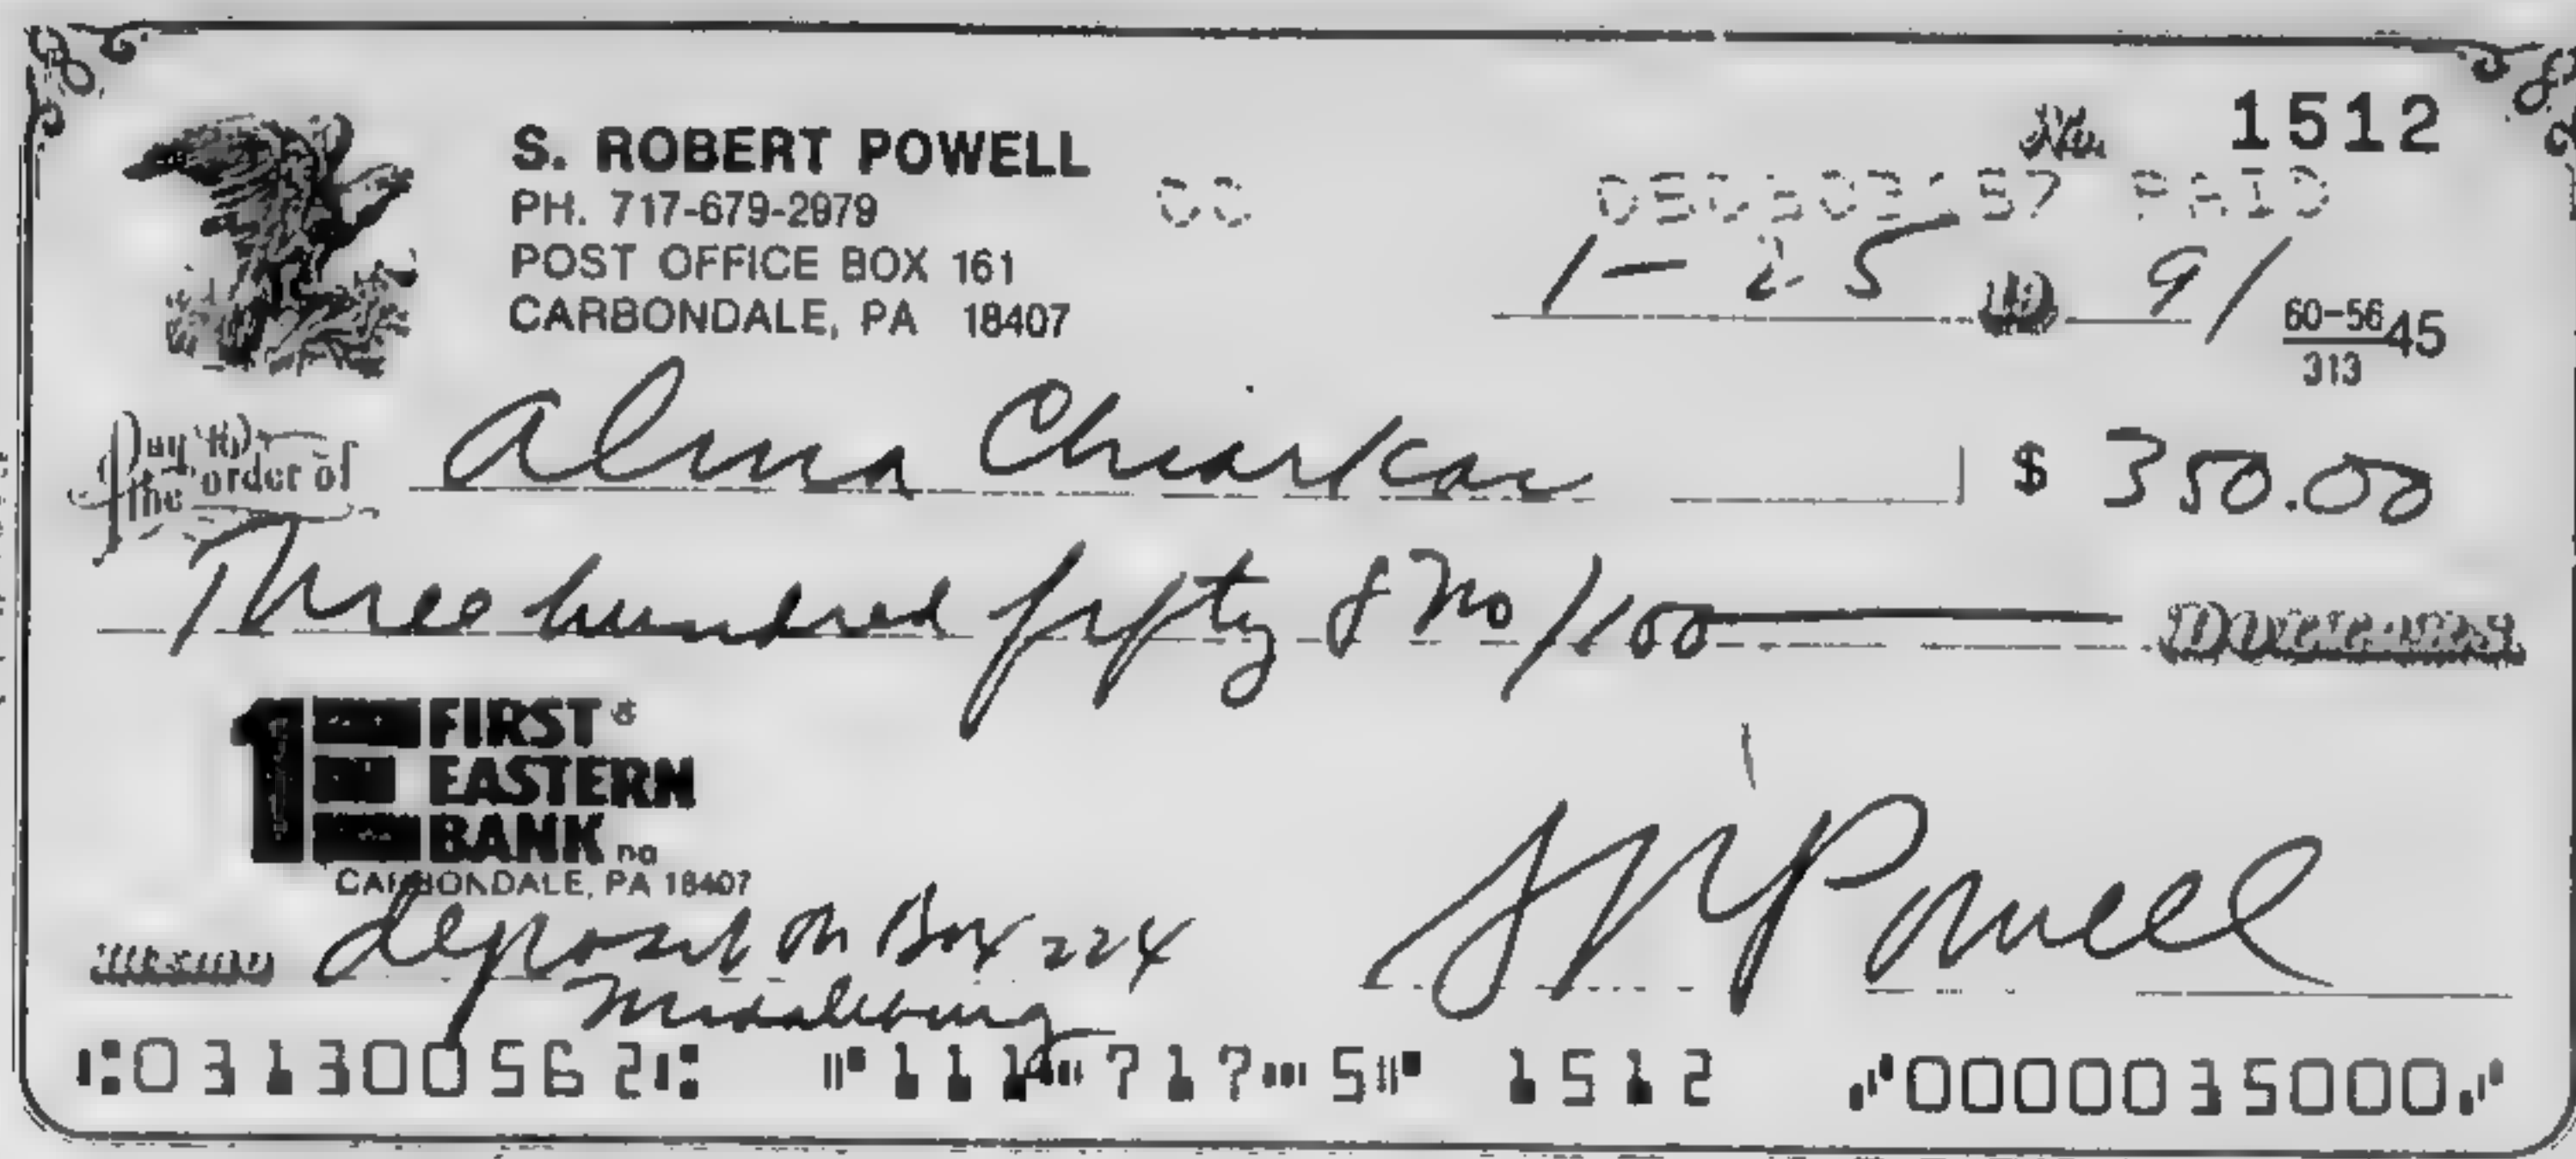 S. ROBERT POWELL
No. 1512
PH. 717-679-2979
CC
PAID
POST OFFICE BOX 161
CARBONDALE, PA 18407
1-25 19 91
60-56 45
313
Pay to the order of Alma $ 350.00
Three hundred fifty & No/100 DOLLARS
1 FIRST
EASTERN
BANK na
CARBONDALE, PA 18407
MEMO deposit on Box 224
Middleburg
S R Powell
⑆031300562⑆ ⑈111⑉717⑉5⑈ 1512 ⑇0000035000⑇